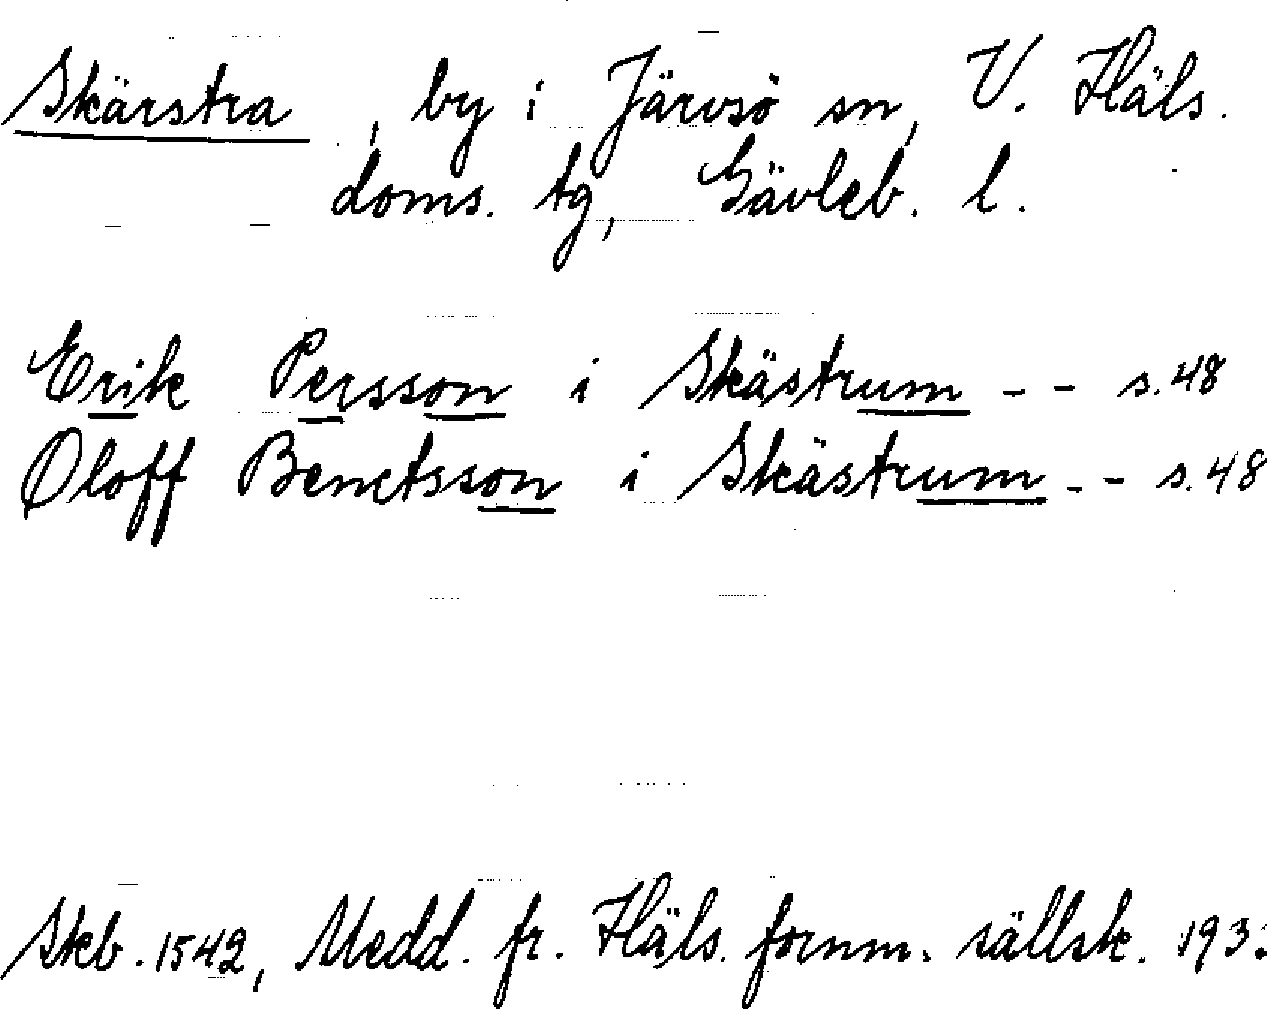 Skärstra, by i Järvsö sn, V. Häls.
doms. tg, Gävleb. l.
Erik Persson i Skästrum - - s. 48
Oloff Benctsson i Skästrum - - s. 48
Skb. 1542, Medd. fr. Häls. fornm. sällsk.